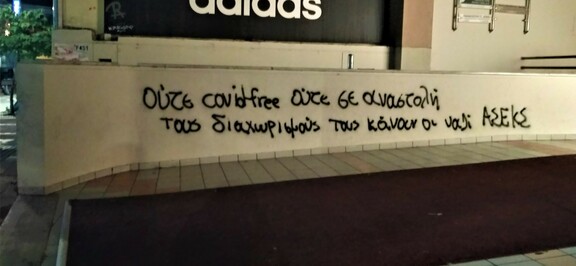 adidas
Ούτε covid-free ούτε σε αναστολή
τους διαχωρισμούς τους κάνουν οι ναζί ΑΣΕΚΣ